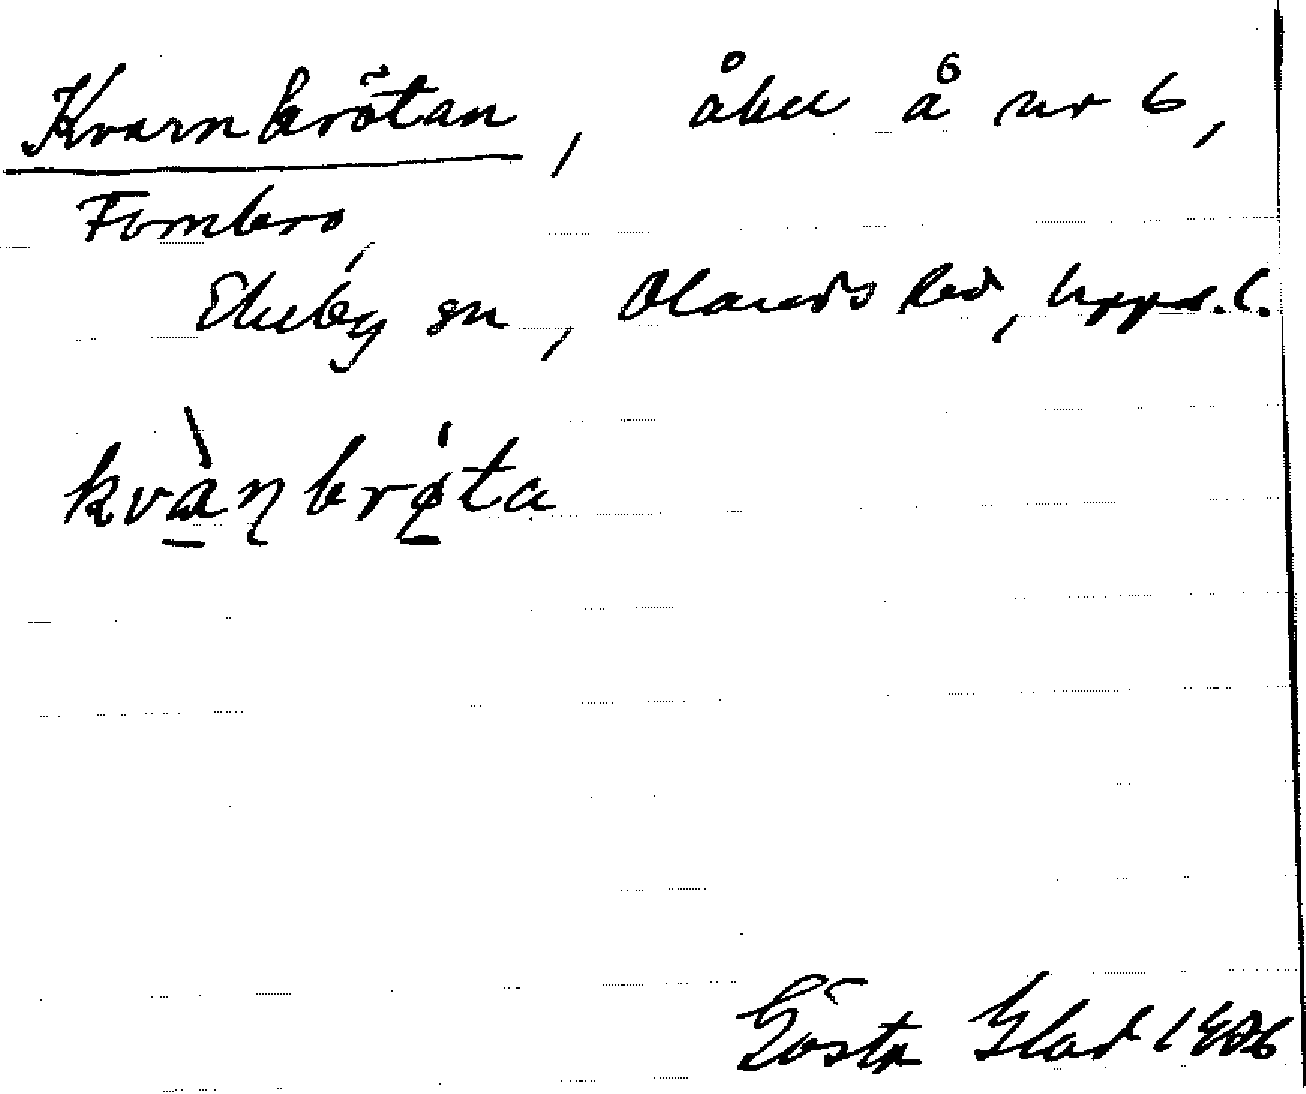 Kvarnbrötan, åker å⁶ nr 6,
Fornbro,
Ekeby sn, Olands hd, Upps. l.
kvànbrø̀ta
Gösta Glad 1986